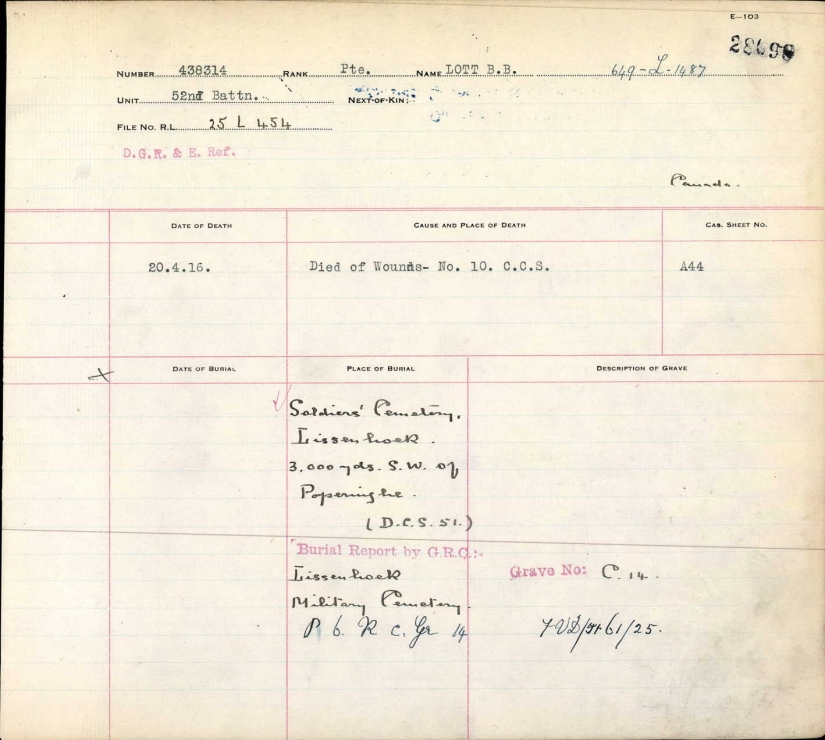 E—103
NUMBER 438314 RANK Pte. NAME LOTT B.B. 649-L-1487
UNIT 52nd Battn. NEXT-OF-KIN:
FILE NO. R.L. 25 L 454
D.G.R. & E. Ref.
Canada.
DATE OF DEATH CAUSE AND PLACE OF DEATH CAS. SHEET NO.
20.4.16. Died of Wounds- No. 10. C.C.S. A44
DATE OF BURIAL PLACE OF BURIAL DESCRIPTION OF GRAVE
Soldiers' Cemetery,
Lissenhoek.
3,000 yds. S.W. of
Poperinghe.
(D.C.S. 51.)
Burial Report by G.R.C.:-
Lissenhoek Grave No: C. 14.
Military Cemetery.
P 6. R C. Gr 14